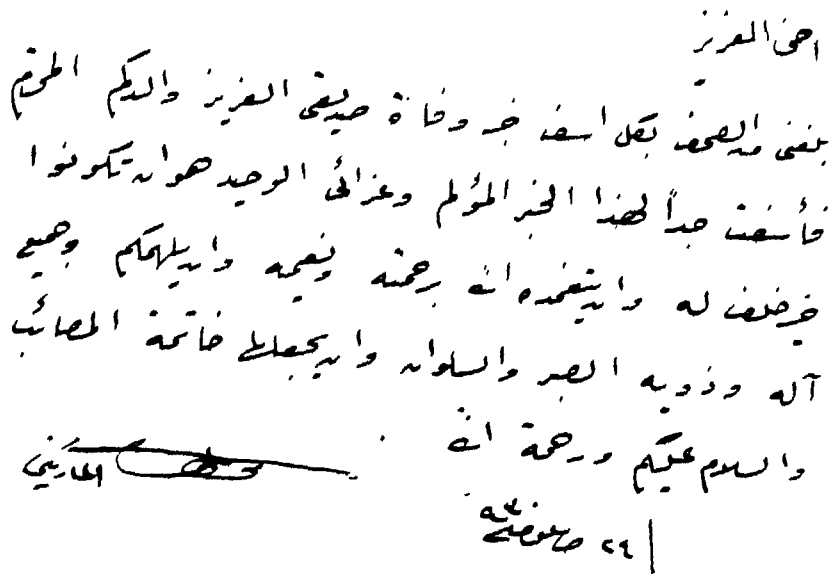 اخي العزيز
بلغني من الصحف بكل اسف خبر وفاة صديقي العزيز والدكم المرحوم
فأسفت جداً لهذا الخبر المؤلم وعزائي الوحيد هو ان تكونوا
خير خلف له وان يتغمده الله برحمته ونعيمه وان يلهمكم وجميع
آله وذويه الصبر والسلوان وان يجعلها خاتمة المصائب
والسلام عليكم ورحمة الله
٢٩